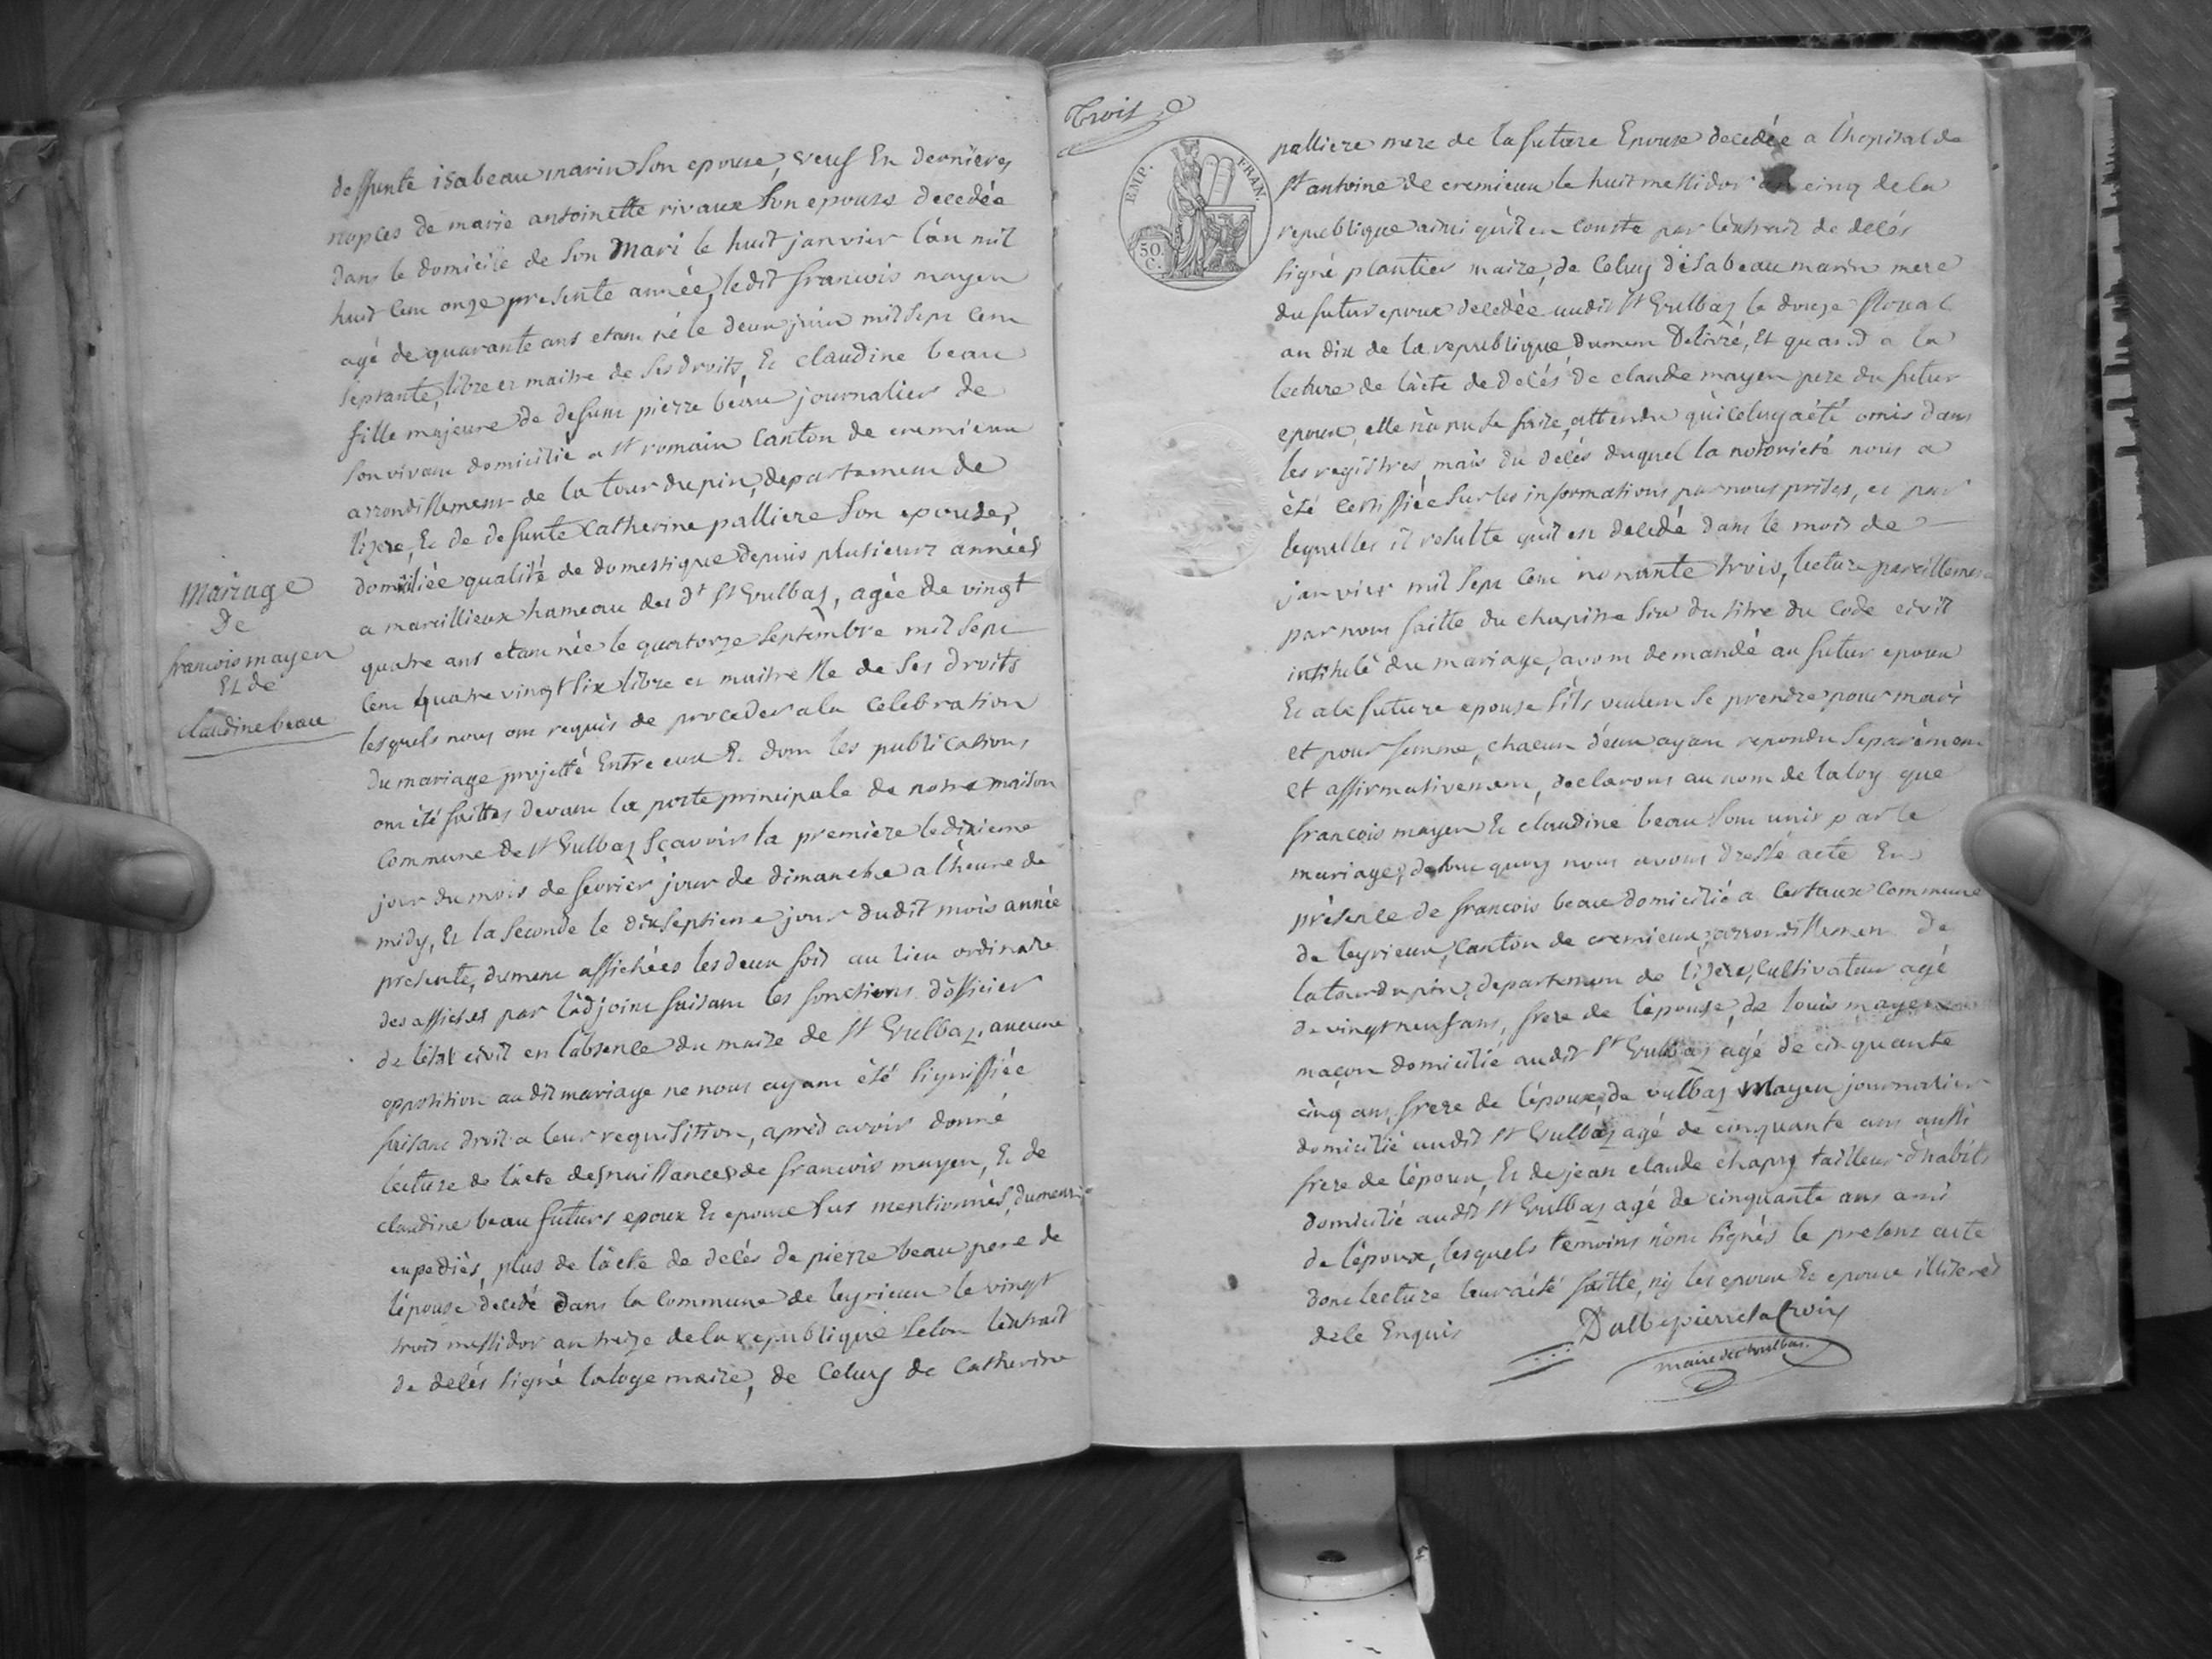 deffunte isabeau marin Son epouse, veuf En dernieres
nopces de marie antoinette rivaux Son epouse decedée
dans le domicile de Son mari le huit janvier l'an mil
huit cent onze presente année, ledit francois mayen
agé de quarante ans etant né le deux juin mil Sept cent
Septante, libre et maitre de Ses droits, Et claudine beau
fille majeure de defunt pierre beau journalier de
Son vivant domicilié a St romain Canton de cremieux
arrondissement de la tour du pin, departement de
l'izere, Et de defunte Catherine palliere Son epouse,
domiciliée qualité de domestique depuis plusieurs années
a marcillieux hameau des dt St Vulbas, agée de vingt
quatre ans etant née le quatorze Septembre mil Sept
Cent quatre vingt Six libre et maitresse de Ses droits
lesquels nous ont requis de proceder a la Celebration
du mariage projetté Entre eux Et dont les publications
ont été faittes devant la porte principale de notre maison
Commune de St Vulbas Sçavoir la premiere le dixieme
jour du mois de fevrier jour de dimanche a l'heure de
midy, Et la Seconde le dix Septieme jour dudit mois année
presente, dument affichées les deux fois au lieu ordinaire
des affiches par l'adjoint faisant les fonctions d'officier
de l'état civil en l'absence du maire de St Vulbas, aucune
opposition au dit mariage ne nous ayant été Signiffiée
faisant droit a leur requisition, après avoir donné
lecture de l'acte des naissances de francois mayen, Et de
claudine beau futurs epoux Et epouse Sus mentionnés, dument
expediés, plus de l'acte de decés de pierre beau pere de
l'épouse decedé dans la Commune de leyrieux le vingt
trois messidor an treize de la republique Selon l'extrait
de decés Signé laloge maire, de Celuy de Catherine
mariage
De
francois mayen
Et de
claudine beau
Trois
EMP. FRAN.
50 C.
palliere mere de la future Epouse decedée a l'hopital de
St antoine de cremieux le huit messidor an cinq de la
republique ainsi qu'il en Conste par l'extrait de decés
Signé plantier maire, de Celuy d'isabeau marin mere
du futur epoux decedée audit St Vulbas le douze floreal
an dix de la republique, dument Delivré, Et quand a la
lecture de l'acte de decés de claude mayen pere du futur
epoux, elle n'a pu Se faire, attendu qu'iceluy a été omis dans
les registres, mais du decés duquel la notorieté nous a
été Certiffiée Sur les informations par nous prises, et par
lequelles il resulte qu'il est decedé dans le mois de
janvier mil Sept Cent nonante trois, lecture pareillement
par nous faitte du chapitre Six du titre du Code civil
intitulé du mariage, avons demandé au futur epoux
Et a la future epouse S'ils veulent Se prendre pour mari
et pour femme, chacun d'eux ayant repondu Separément
et affirmativement, declarons au nom de la loy que
francois mayen Et claudine beau Sont unis par le
mariage, de tout quoy nous avons dressé acte En
présence de francois beau domicilié a Certaux Commune
de leyrieux, Canton de cremieux, arrondissement de
la tour du pin, departement de l'izere, Cultivateur agé
de vingt neuf ans, frere de l'épouse, de louis mayen
maçon domicilié audit St Vulbas agé de cinquante
cinq ans, frere de l'époux, de vulbas Mayen journalier
domicilié audit St Vulbas agé de cinquante ans aussi
frere de l'époux, Et de jean claude chapuy tailleur d'habits
domicilié audit St Vulbas agé de cinquante ans ami
de l'époux, lesquels temoins n'ont Signés le present acte
dont lecture leur a été faitte, ny les epoux Et epouse illiterés
de le Enquis
maire de St Vulbas.